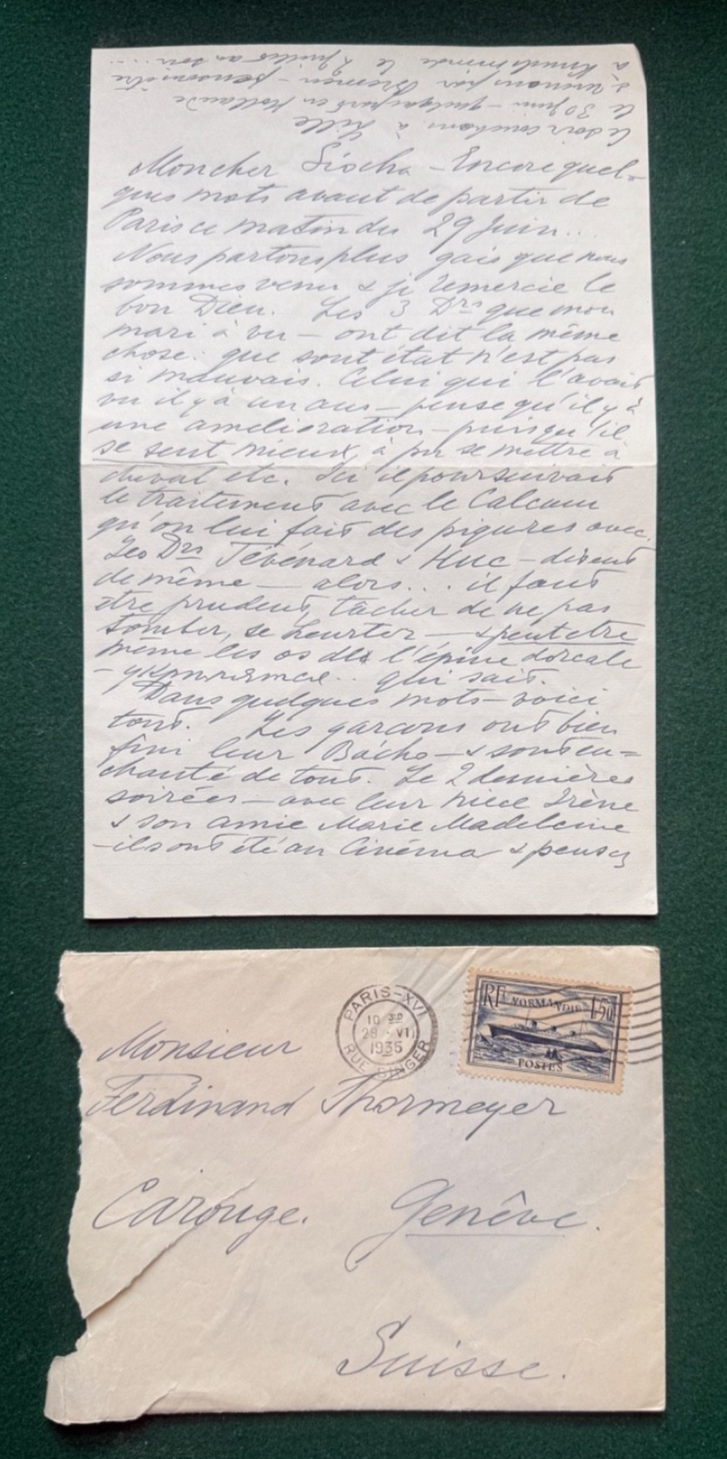 le soir couchons à Lille
le 30 juin – quelque part en Hollande
par Bremen – pensons être
à le 2 juillet au soir....
Mon cher Siocha – Encore quel-
ques mots avant de partir de
Paris ce matin du 29 Juin...
Nous partons plus gais que nous
sommes venus & je remercie le
bon Dieu. Les 3 Drs que mon
mari à vu – ont dit la même
chose. que sont état n'est pas
si mauvais. Celui qui l'avait
vu il y a un ans – pense qu'il y à
une amélioration – puisqu'il
se sent mieux, à pu se mettre à
cheval etc. Ici il poursuivait
le traitement avec le Calcium
qu'on lui fait des piqures avec.
Les Drs Tévénard & Huc – disent
de même – alors... il faut
être prudent, tâcher de ne pas
tomber, se heurter – & peut etre
même les os de l'épine dorsale
– укрпятся.. qui sait.
Dans quelques mots – voici
tout. Les garcons ont bien
fini leur Bacho – & sont en=
chanté de tout. Le 2 dernières
soirées – avec leur niece Irène
& son amie Marie Madeleine
– ils ont été au Cinéma & pensez
Monsieur
Ferdinand Thormeyer
Carouge. Genêve.
Suisse.
PARIS-XVI
10
29 · VI
1935
RUE SINGER
RF NORMANDIE 1f50
POSTES